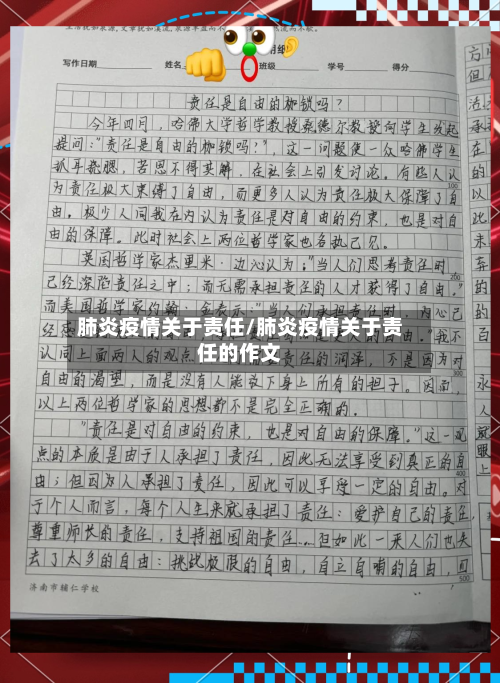 写作日期 姓名 班级 学号 得分
责任是自由的枷锁吗？
今年四月，哈佛大学哲学教授桑德尔教授向学生发起
提问："责任是自由的枷锁吗？"，这一问题使一众哈佛学生
抓耳挠腮，苦思不得其解，在社会上引发讨论。有些人认
为责任极大束缚了自由，而更多人认为责任极大保障了自
由。极少人同我在内认为责任是对自由的约束，也是对自
由的保障。此时社会上两位哲学家也各执己见。
英国哲学家杰里米·边沁认为："当人们思考责任时，
已经深陷责任之中；而无需承担责任的人才获得了自由。"
而美国哲学家约翰·金表示："当人们承担责任时，内心已
肺炎疫情关于责任/肺炎疫情关于责
任的作文
经
"我不
认同上面两人的观点
责任的润泽，不是因为对
自由的渴望，而是没有人能放下身上所有的担子。因而，
以上两位哲学家的思想都不是完全正确的。
"责任是对自由的约束，也是对自由的保障。"这一观
点的本质是由于人承担了责任，因此无法享受到真正的自
由；但因为人承担了责任，因此可以享受一定的自由。对
于个人而言，每个人生来就承担了责任：爱护自己的责任，
尊重师长的责任，支持祖国的责任…但如此一来人们也失
去了太多的自由：挑战极限的自由，自立自哨的自由，可
100
500
济南市辅仁学校